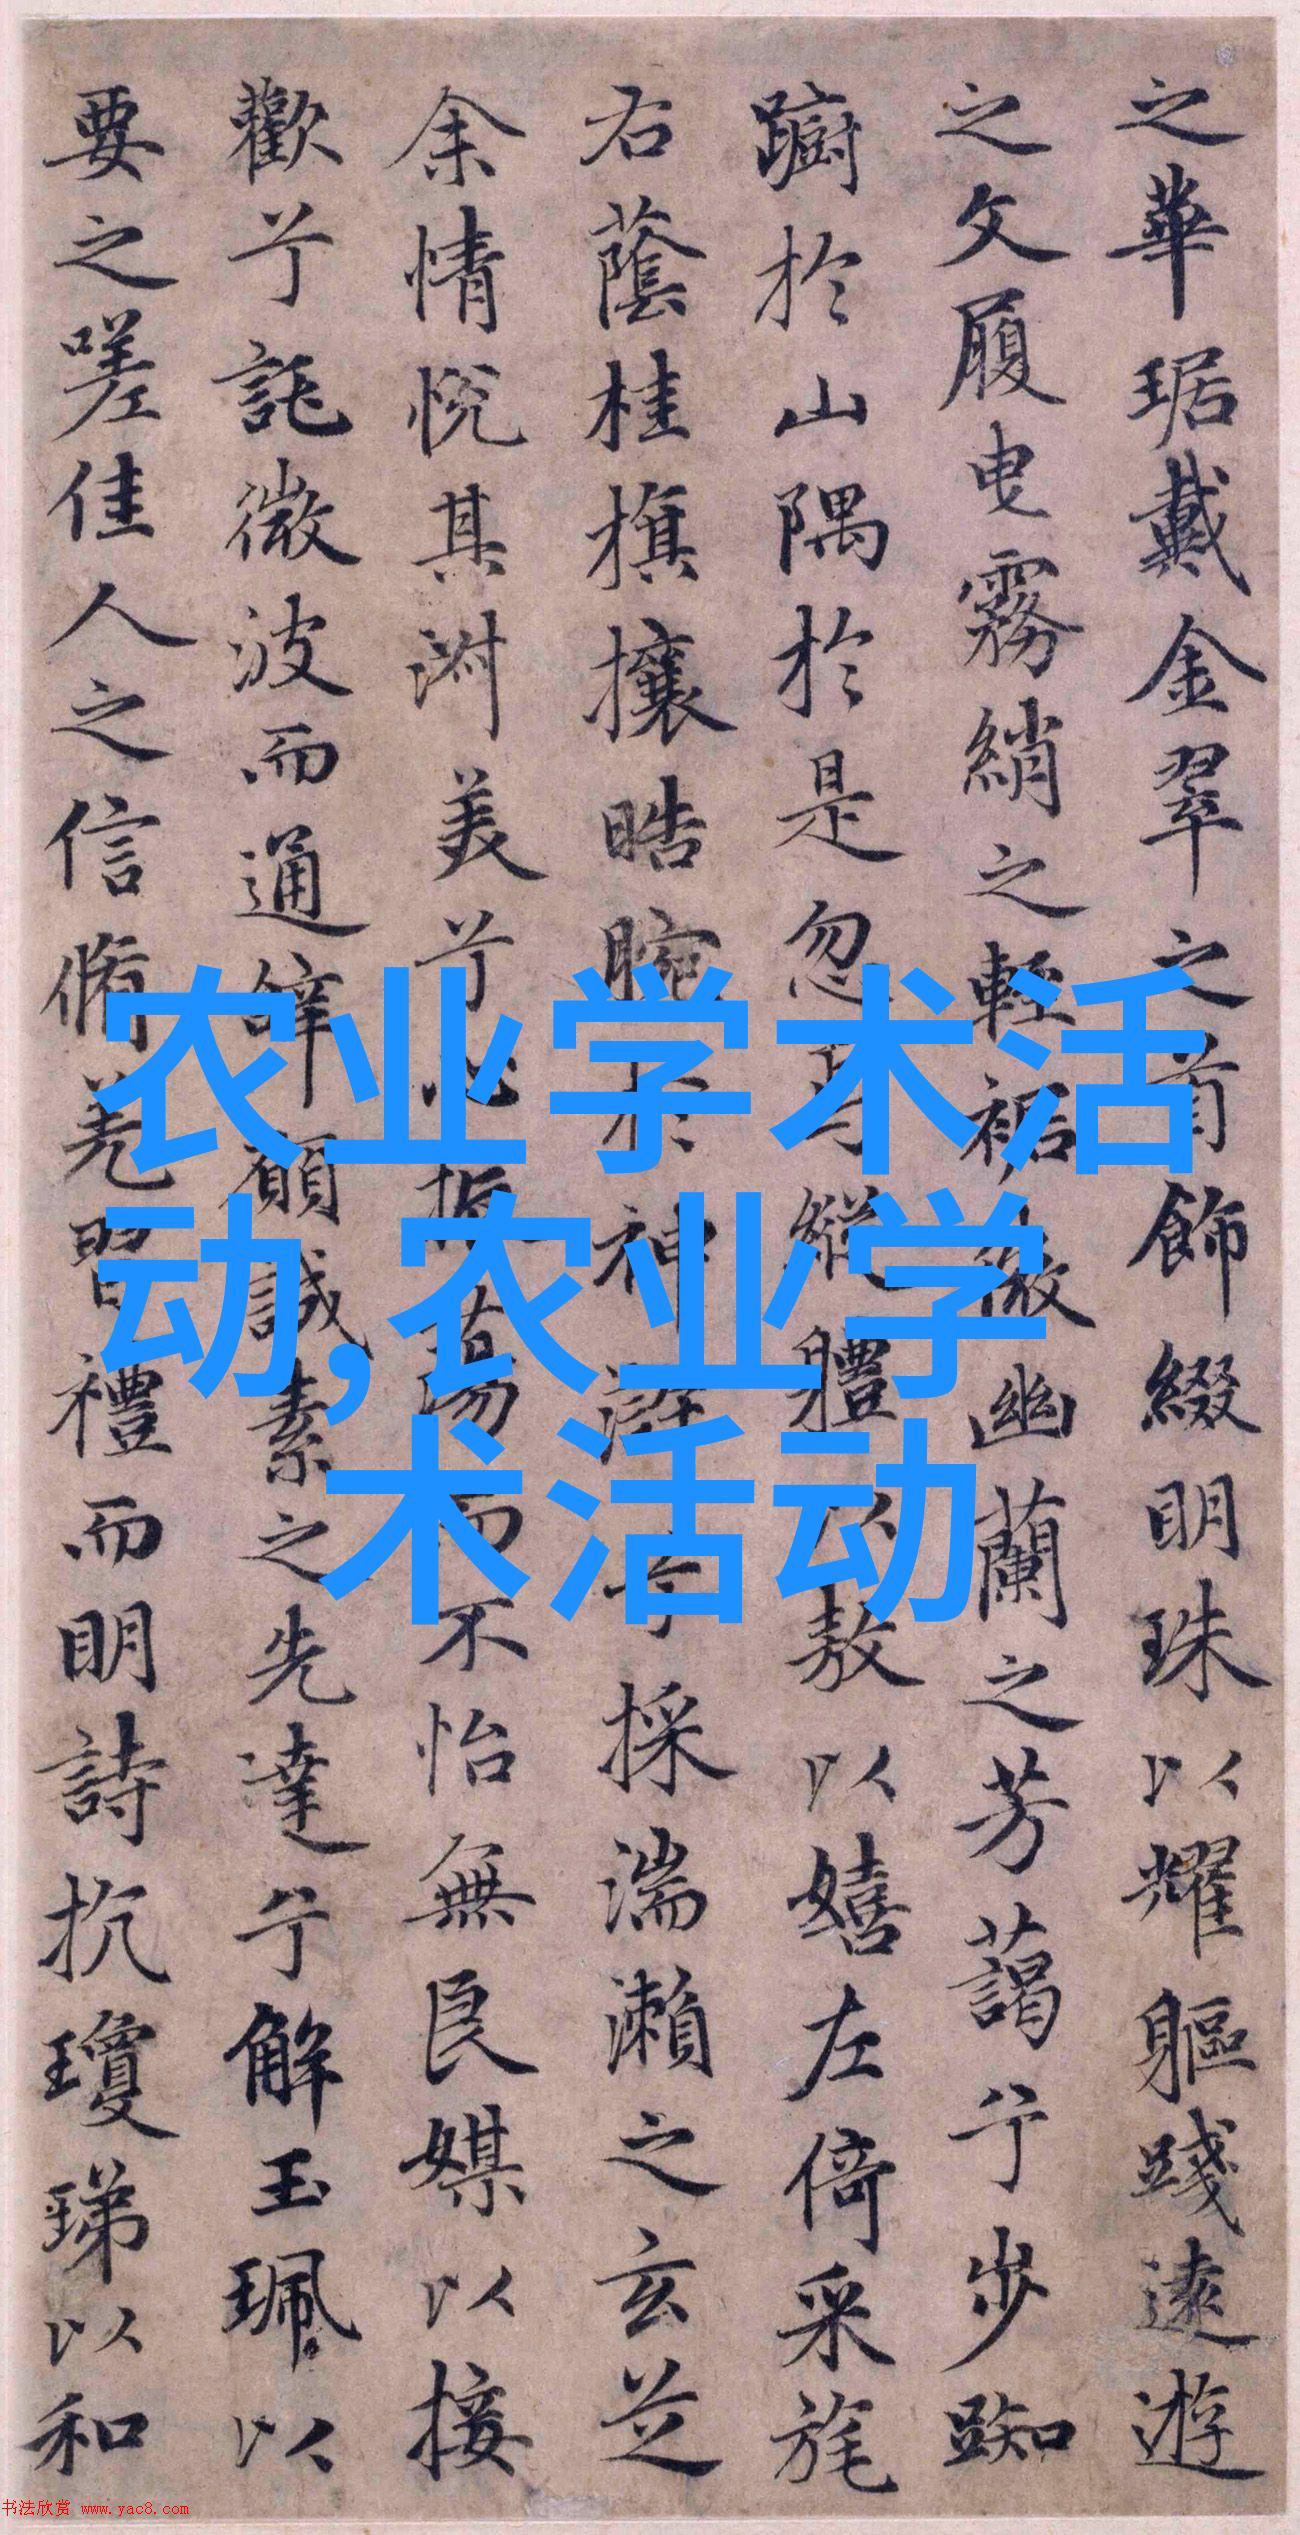 之華琚戴金翠之首飾綴眀珠以耀軀踐遠遊
之文履曳霧綃之輕裾微幽蘭之芳藹兮步踟
蹰於山隅於是忽縱體以敖以嬉左倚采旄
右蔭桂旗攘晧腕於神滸兮採湍瀨之玄芝
余情悅其淑美兮心振蕩而不怡無良媒以接
歡兮託微波而通辭願誠素之先達兮解玉珮以
要之嗟佳人之信脩羌習禮而眀詩抗瓊珶以和
农业学术活
动,农业学
术活动
书法欣赏 www.yac8.com